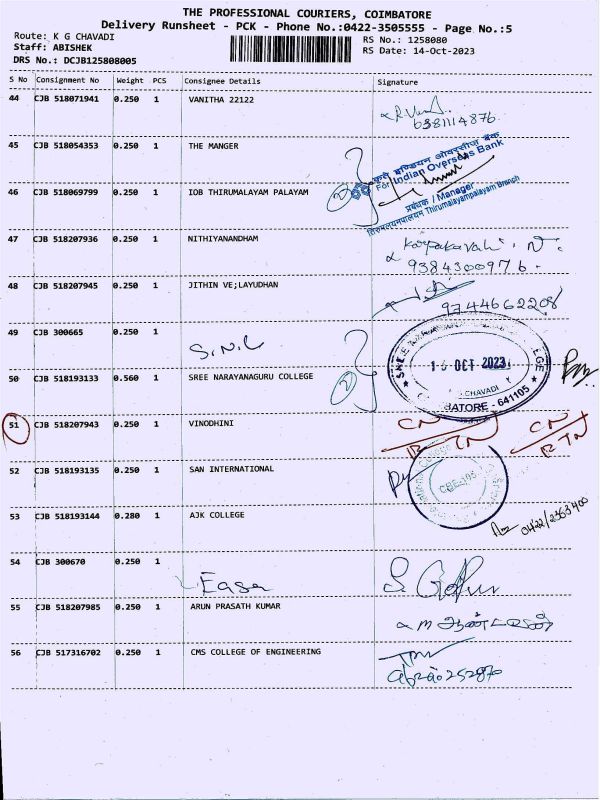 THE PROFESSIONAL COURIERS, COIMBATORE
Delivery Runsheet - PCK - Phone No.:0422-3505555 - Page No.:5
Route: K G CHAVADI
RS No.: 1258080
Staff: ABISHEK
RS Date: 14-Oct-2023
DRS No.: DCJB125808005
S No Consignment No Weight PCS Consignee Details Signature
44 CJB 518071941 0.250 1 VANITHA 22122
6381114876
45 CJB 518054353 0.250 1 THE MANGER
कृते इण्डियन ओवरसीज बैंक
For Indian Overseas Bank
46 CJB 518069799 0.250 1 IOB THIRUMALAYAM PALAYAM
2
प्रबंधक / Manager
Thirumalayampalayam Branch
47 CJB 518207936 0.250 1 NITHIYANANDHAM
9384300976
48 CJB 518207945 0.250 1 JITHIN VE;LAYUDHAN
9744662208
49 CJB 300665 0.250 1
S.N.C
OCT 2023
50 CJB 518193133 0.560 1 SREE NARAYANAGURU COLLEGE
2
CHAVADI
BATORE - 641105
51 CJB 518207943 0.250 1 VINODHINI
CN CN
RTN RTN
52 CJB 518193135 0.250 1 SAN INTERNATIONAL
CBE-105
53 CJB 518193144 0.280 1 AJK COLLEGE
0422/2363400
54 CJB 300670 0.250 1
Easa
55 CJB 518207985 0.250 1 ARUN PRASATH KUMAR
56 CJB 517316702 0.250 1 CMS COLLEGE OF ENGINEERING